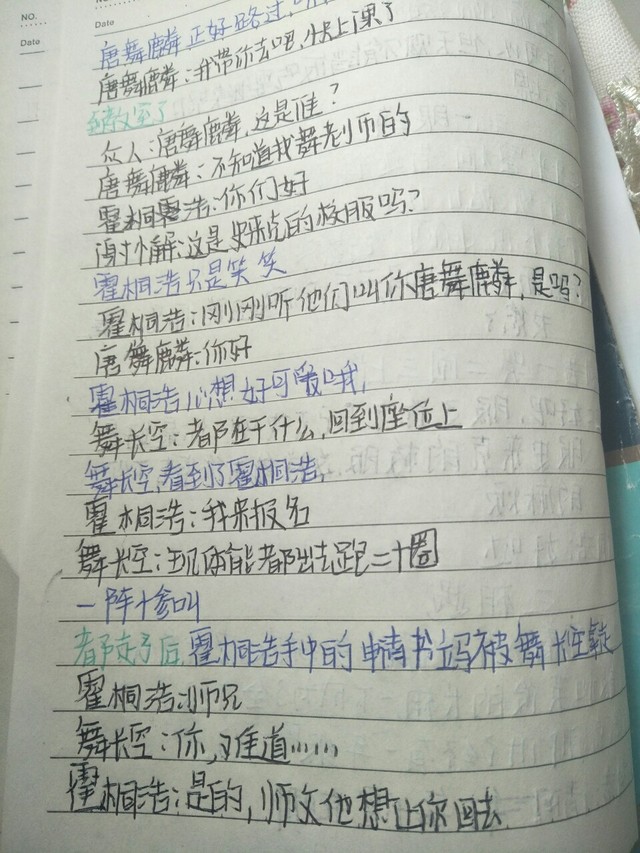 NO.
Date
NO.
Date
唐舞麟正好路过,
唐舞麟:我带你去吧,快上课了
到教室了
众人:唐舞麟,这是谁?
唐舞麟:不知道找舞老师的
霍桐浩:你们好
谢小解:这是史来克的校服吗?
霍桐浩只是笑笑
霍桐浩:刚刚听他们叫你唐舞麟,是吗?
唐舞麟:你好
霍桐浩心想好可爱哦,
舞长空:都在干什么,回到座位上
舞长空,看到了霍桐浩,
霍桐浩:我来报名
舞长空:现体能都出去跑二十圈
一阵惨叫
都走了后霍桐浩手中的申请书立马被舞长空拿走
霍桐浩:师兄
舞长空:你,难道……
霍桐浩:是的,师父他想让你回去